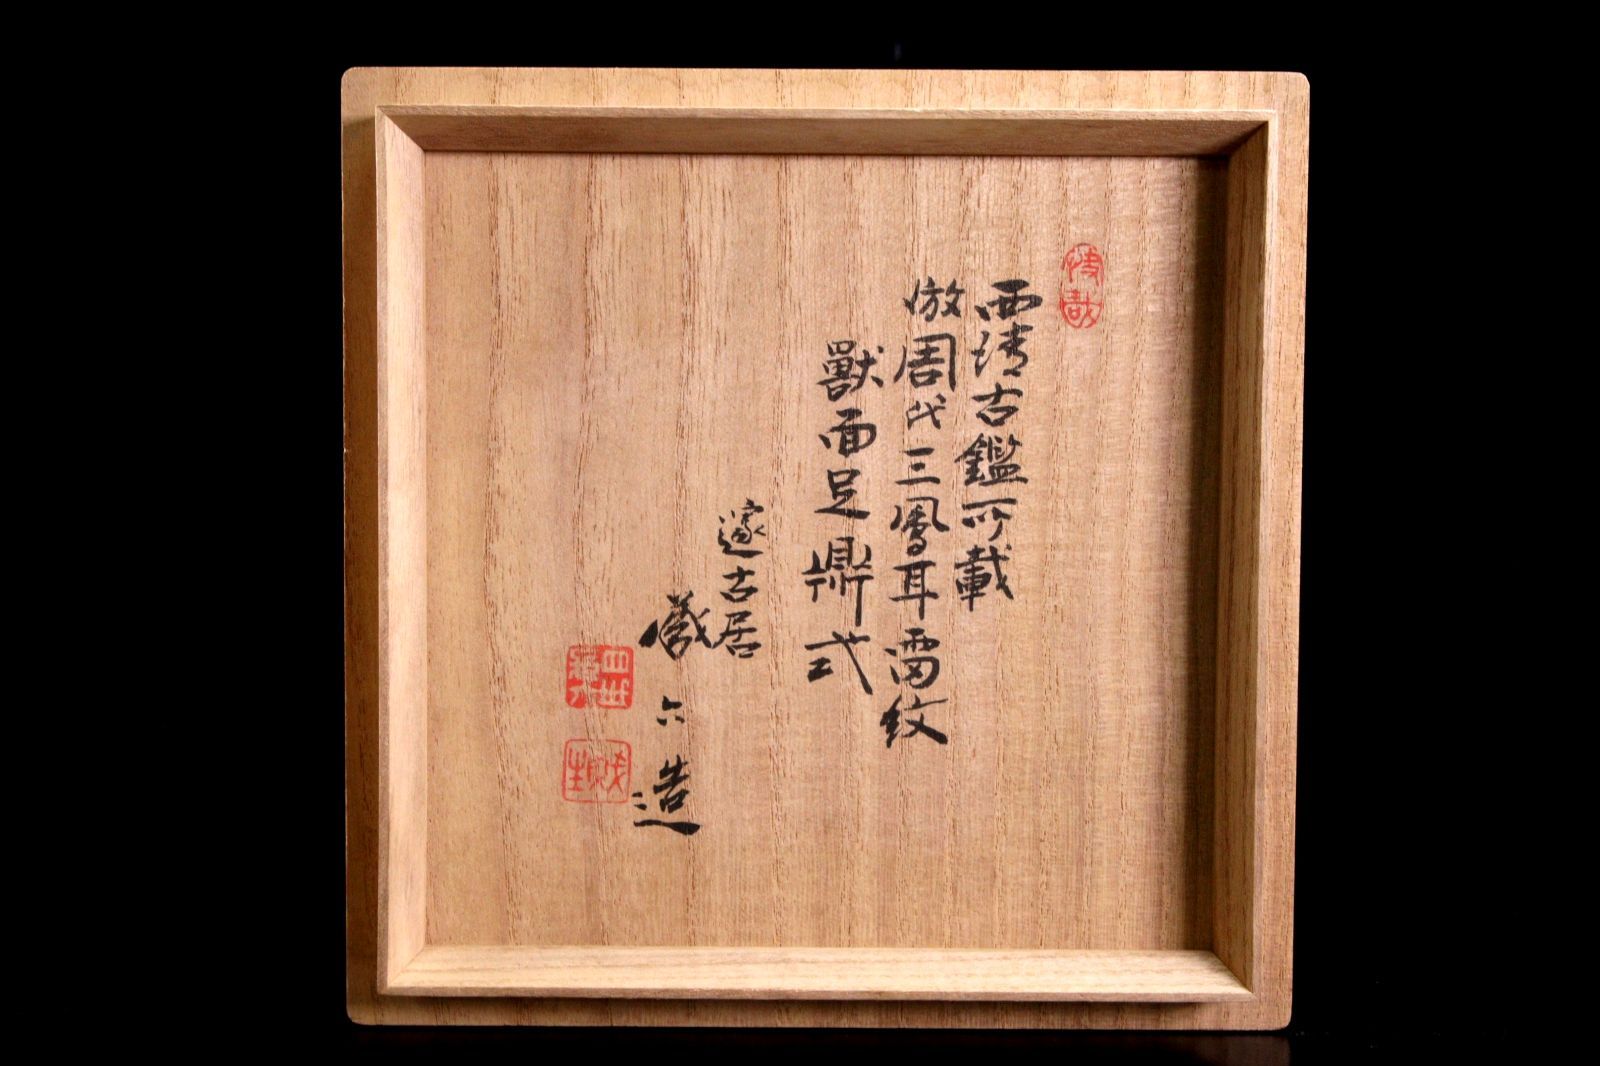 西清古鑑所載
倣周代三鳳耳雷紋
獸面足鼎式
邃古居
蔵六造